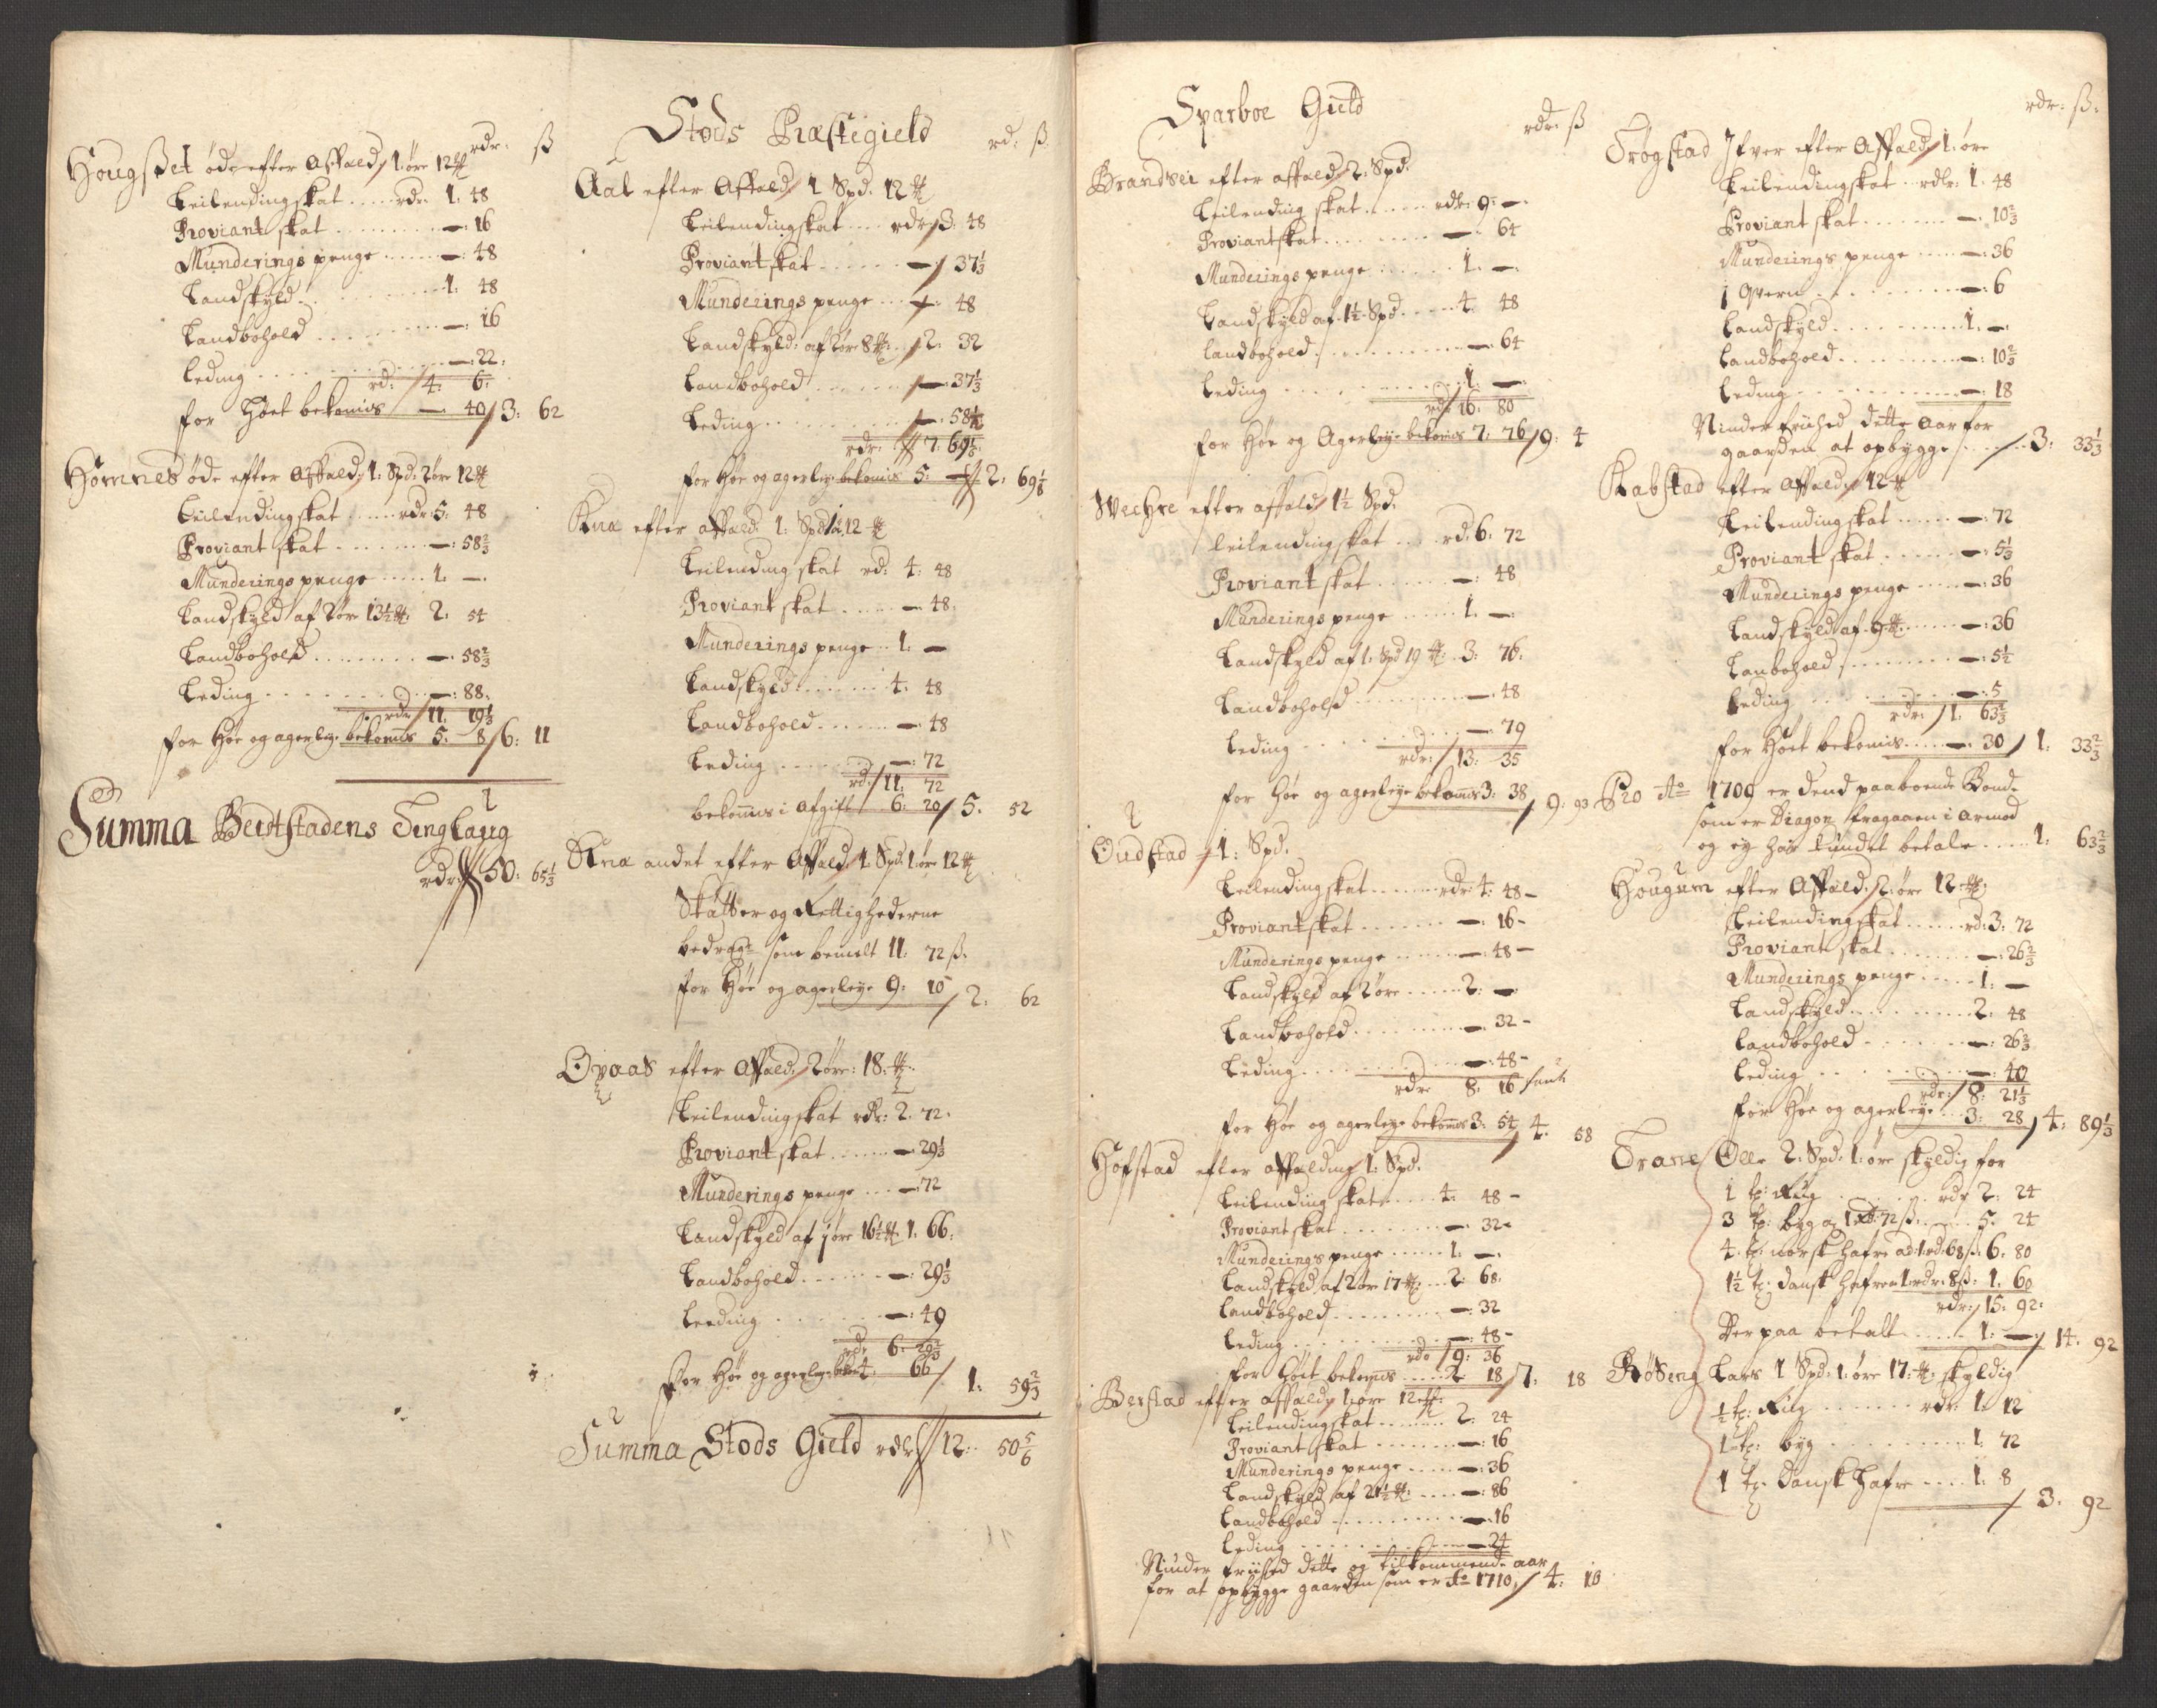 rdr: ß
Hougßet öde efter Affald 1 öre 12 ₶
Leilendingskat ..... rdr. 1. 48
Proviant skat ........ —: 16
Munderings penge ..... —: 48
Landskyld ......... 1: 48
Landbohold ......... —: 16
Leding ......... —: 22:
rd: 4: 6:
for Höet bekomis —: 40 / 3: 62
Hömnes öde efter Affald 1: Spd: 2 öre 12 ₶
Leilendingskat ..... rdr: 5: 48
Proviant skat ....... —: 58 2/3
Munderings penge ..... 1: —
Landskyld af 2 öre 13½ ₶: 2: 54
Landbohold ....... —: 58 2/3
Leding ......... —: 88:
rdr 11: 19 1/3
for Höe og agerleye bekomis 5: 8 / 6: 11
Summa Beitstadens Tinglaug
rdr: 50: 65 1/3
Stods Præstegield
rd: ß
Aal efter Affald 1 Spd. 12 ₶
Leilendingskat .... rdr 3: 48
Proviant skat ...... —: 37 1/3
Munderings penge ... —: 48
Landskyld: af 2 öre 8 ₶: 2: 32
Landbohold ...... —: 37 1/3
Leding ........ —: 58½
rdr: 7: 69 1/6
for Höe og agerleye bekomis 5: — 2: 69 1/6
Knæ efter affald 1: Spd 1 ö 12 ₶
Leilending skat rd: 4: 48
Proviant skat ..... —: 48:
Munderings penge .. 1: —
Landskyld ....... 4: 48
Landbohold ...... —: 48
Leding ........ —: 72
rd: 11: 72
bekomis i afgift 6: 20 / 5: 52
Knæ andet efter Affald 1 Spd. 1 öre 12 ₶
Skatter og Rettighederne
bedragr som bemelt 11: 72 ß.
for Höe og agerleye 9: 10 / 2: 62
Opaas efter Affald 2 öre: 18: ₶
Leilendingskat rdr: 2: 72:
Proviant skat ...... —: 29 1/3
Munderings penge ... —: 72
Landskyld af 1 öre 16½ ₶ 1: 66:
Landbohold ...... —: 29 1/3
Leeding ....... —: 49
rdr 6: 29 2/3
for Höe og agerleye bekom 4: 66 / 1: 59 2/3
Summa Stods Gield rdr 12: 50 5/6
Sparboe Gield
rdr: ß
Brandsei efter affald 2: Spd:
Leilending skat ...... rdr: 9: —
Proviantskat ........ —: 64
Munderings penge ...... 1: —:
Landskyld af 1½ Spd ..... 4: 48
landbohold ......... —: 64
Leding ......... 1: —
rdr 16: 80
for Höe og Agerleye bekomis 7: 76 / 9: 4
Wechre efter affald 1½ Spd.
leilendingskat ..... rd: 6: 72
Proviant skat ...... —: 48
Munderings penge ..... 1: —:
Landskyld af 1: Spd 19 ₶: 3: 76:
Landbohold ......... —: 48
leding ......... —: 79
rdr: 13: 35
for Höe og agerleye bekomis 3: 38 / 9: 93
Oudstad 1: Spd.
Leilendingskat ...... rdr: 4: 48 –
Proviantskat ....... —: 16 –
Munderings penge ..... —: 48 –
Landskyld af 2 öre ..... 2: —:
Landbohold ........ —: 32 –
Leding ......... —: 48 –
rdr 8: 16
for Höe og agerleye bekomis 3: 54 / 4: 58
Hofstad efter affalding 1: Spd.
Leilending skat ...... 4: 48 –
Proviant skat ....... —: 32 –
Munderings penge ..... 1: —:
Landskyld af 2 öre 17 ₶: ... 2: 68:
Landbohold ........ —: 32
Leding ......... —: 48 –
rdr 9: 36
for Höet bekomis ..... 2 18 / 7: 18
Berstad efter affald 1 öre 12 ₶
Leilendingskat ....... 2: 24
Proviant skat ....... —: 16
Munderings penge ..... —: 36
Landskyld af 21½ ₶: ..... —: 86
Landbohold ......... —: 16
Leding ......... —: 24
Niuder friihed dette og tilkommende aar
for at opbygge gaarden som er Ao 1710, / 4: 10
rdr: ß:
Trögstad Ifver efter Affald 1: öre
Leilendingskat .. rdlr: 1: 48
Proviant skat ....... —: 10 2/3
Munderings penge ..... —: 36
1 Qvern ......... —: 6
Landskyld ......... 1: —:
Landbohold ........ —: 10 2/3
Leding ......... —: 18
Niuder friihed dette Aar for
gaarden at opbygge ..... 3: 33 1/3
Kabstad efter Affald 12 ₶
Leilendingskat ...... —: 72
Proviant skat ...... —: 5 1/3
Munderings penge ..... —: 36
Landskyld af 9 ₶: ..... —: 36
Lanbohold ........ —: 5½
Leding ........ —: 5
rdr: 1: 63 1/3
for Höet bekomis ..... —: 30 / 1: 33 2/3
Pro Ao 1700 er dend paaboende Bonde
som er Dragon fragaaen i armod
og ej har kundet betale .... 1: 63 2/3
Hougum efter Affald 2: öre 12 ₶:
Leilendingskat ..... rd: 3: 72
Proviant skat ....... —: 26 2/3
Munderings penge .... 1: —
Landskyld ......... 2: 48
Landbohold ....... —: 26 2/3
Leding ....... —: 40
rdr: 8: 21 1/3
for Höe og agerleye .. 3: 28 / 4: 89 1/3
Trane Olle 2: Spd. 1: öre skyldig for
1 tp: Rüg ....... rdr 2: 24
3 tp: byg a 1 rd: 72 ß: .... 5: 24
4: tp: norsk hafre ad 1 rd: 68 ß: 6: 80
1½ tp: dansk hafre a 1 rdr: 8 ß: 1: 60
rdr: 15: 92:
Der paa betalt ..... 1: —: / 14: 92
Röseng Lars 1 Spd: 1: öre 17: ₶: skyldig
½ tp: Rüg ....... rdr: 1: 12
1 tp: byg ......... 1: 72
1 tp: Dansk Hafre .... 1: 8
/ 3: 92